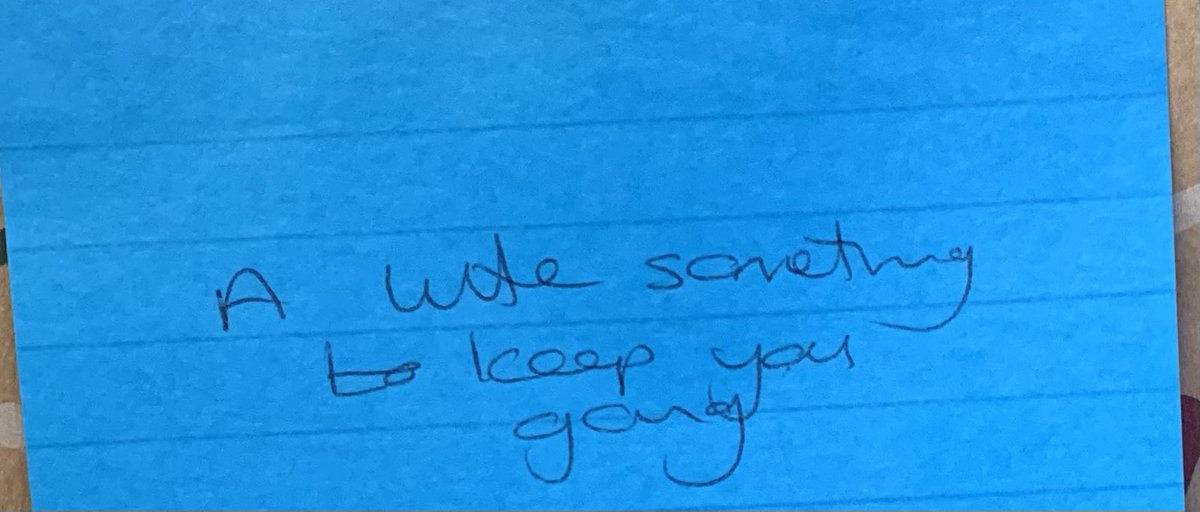 A little something
to keep you
going